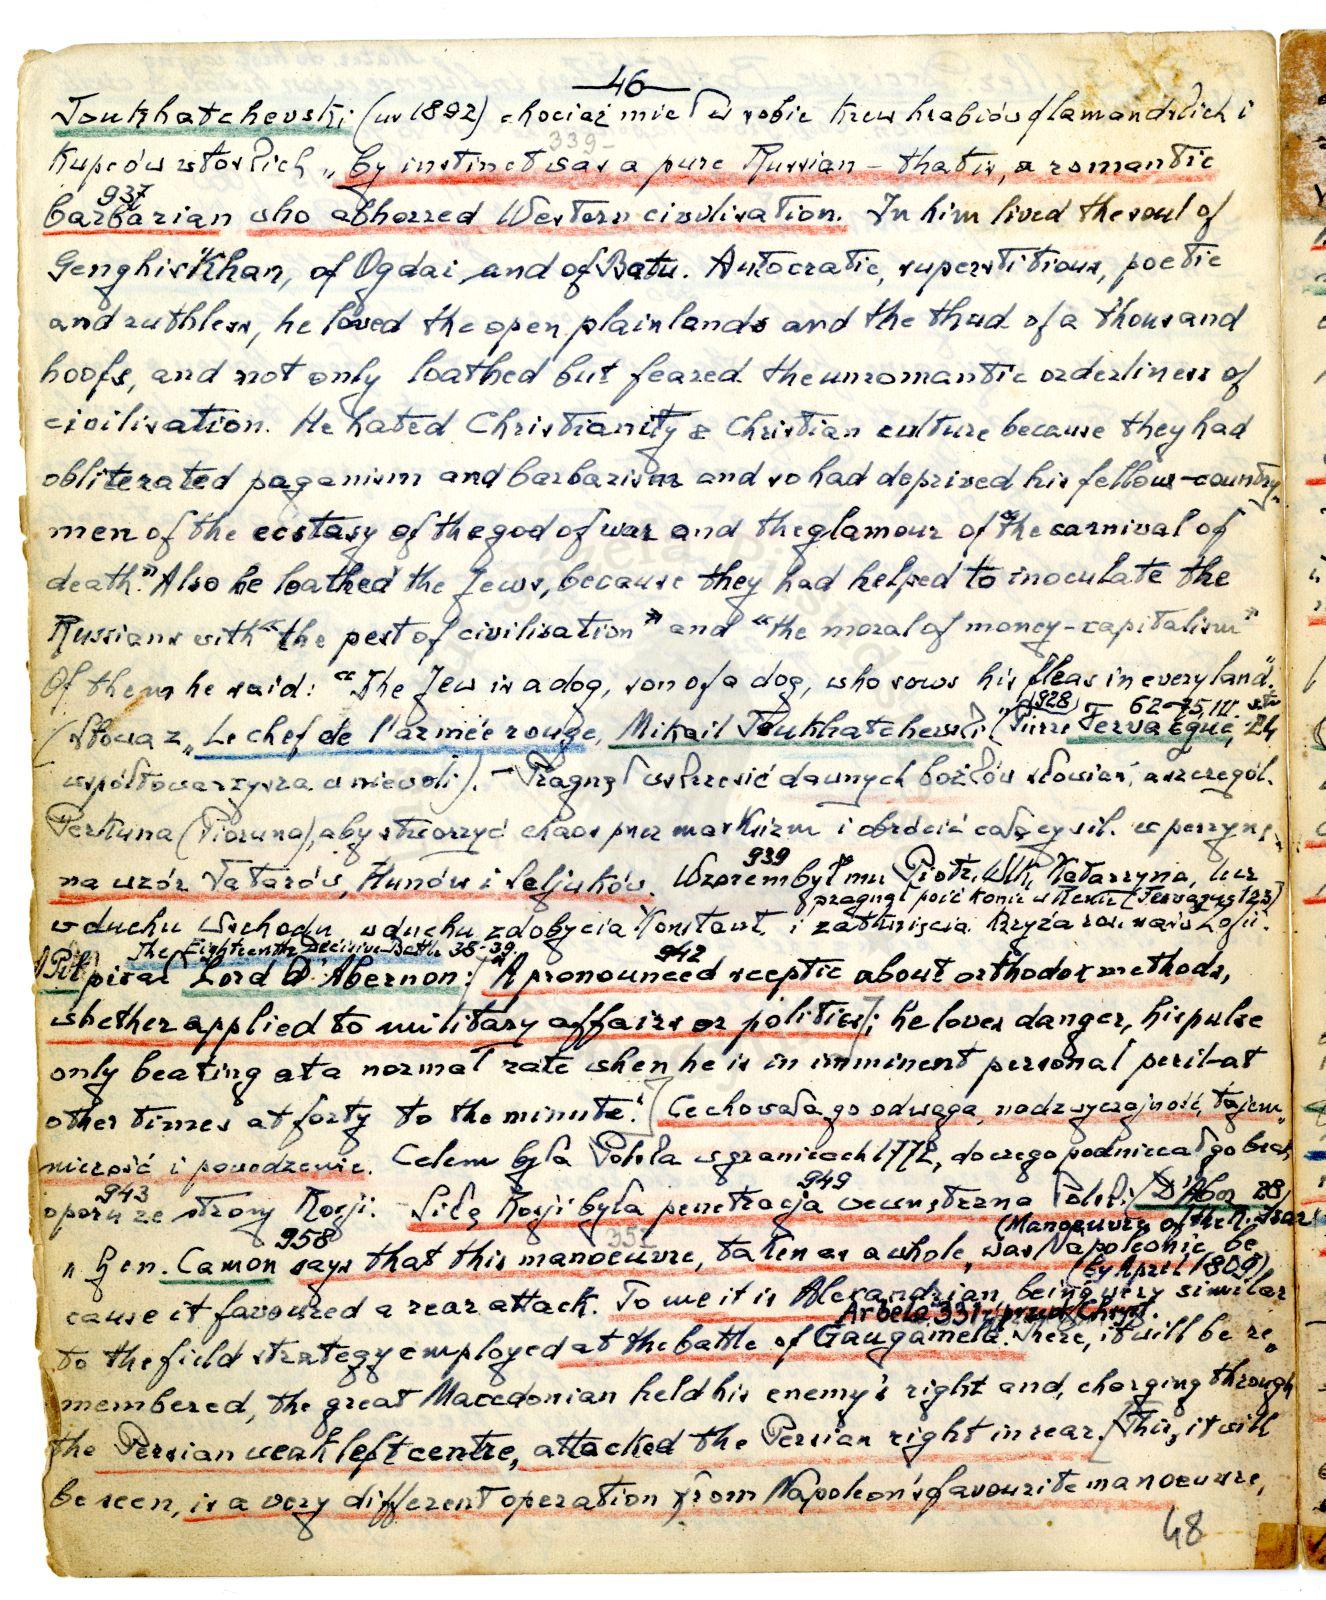 46
Toukhatchevski (ur 1892) chociaż miał w sobie krew hrabiów flamandzkich i
339-
kupców włoskich „by instinct was a pure Russian – that is, a romantic
937
barbarian who abhorred Western civilisation. In him lived the soul of
Genghis Khan, of Ogdai, and of Batu. Autocratic, superstitious, poetic
and ruthless, he loved the open plainlands and the thud of a thousand
hoofs, and not only loathed but feared the unromantic orderliness of
civilisation. He hated Christianity & Christian culture because they had
obliterated paganism and barbarism and so had deprived his fellow-country-
men of the ecstasy of the god of war and the glamour of "the carnival of
death". Also he loathed the Jews, because they had helped to inoculate the
Russians with "the pest of civilisation" and "the moral of money-capitalism"
Of them he said: "The Jew is a dog, son of a dog, who sows his fleas in every land".
(928) 62-75, III
(słowa z „Le chef de l'armée rouge, Mikail Toukhatchevski (Pierre Fervacque, 24
współtowarzysza w niewoli). – Pragnął wskrzesić dawnych bożków słowiań, a szczegól.
Perkuna (Pioruna), aby stworzyć chaos przez marksizm i obrócić
na wzór Tatarów, Hunów i Seljuków. 939 Wzorem był mu Piotr Wlk, Katarzyna, lecz
pragnął poić konie w Renie (Fervacque 123)
w duchu Wschodu, w duchu zdobycia Konstant. i zatknięcia krzyża na św. Zofii.
The Eighteenth Decisive Battle 38-39 942
O Pił. pisał Lord D'Abernon: "A pronounced sceptic about orthodox methods,
whether applied to military affairs or politics; he loves danger, his pulse
only beating at a normal rate when he is in imminent personal peril – at
other times at forty to the minute." Cechowała go odwaga, nadzwyczajność, tajem„
niczość i powodzenie. Celem była Polska w granicach 1772, do czego podniecał go brak
943 949
oporu ze strony Rosji. Siłą Rosji była penetracja wewnętrzna Polski (D'Aber 28)
(Manoeuvre of the R. Isar
958 351
„Gen. Camon says that this manoeuvre, taken as a whole, was Napoleonic, be
(by April 1809)
cause it favoured a rear attack. To me it is Alexandrian, being very similar
Arbela 331 r. przed Chryst.
to the field strategy employed at the battle of Gaugamela. There, it will be re„
membered, the great Macedonian held his enemy's right and, charging through
the Persian weak left centre, attacked the Persian right in rear. This, it will
be seen, is a very different operation from Napoleon's favourite manoeuvre,
48